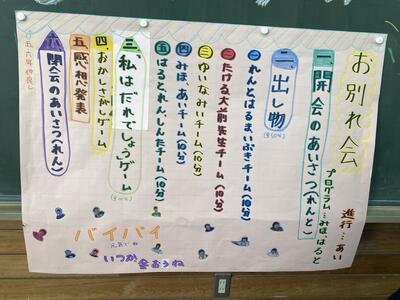 お別れ会
進行…あい
プログラム…みほ、はると
一、開会のあいさつ(れんと)
二、出し物
(全50分)
一 れんとはるまいぶきチーム(10分)
二 たける大前先生チーム(10分)
三 ゆいなみいチーム(10分)
四 みほ、あいチーム(10分)
五 はるとれんしんたチーム(10分)
三、私はだれでしょうゲーム
四、おかしさがしゲーム
五、感想発表
六、閉会のあいさつ(れん)
五、六年仲良し
バイバイ
元気でね
いつか会おうね